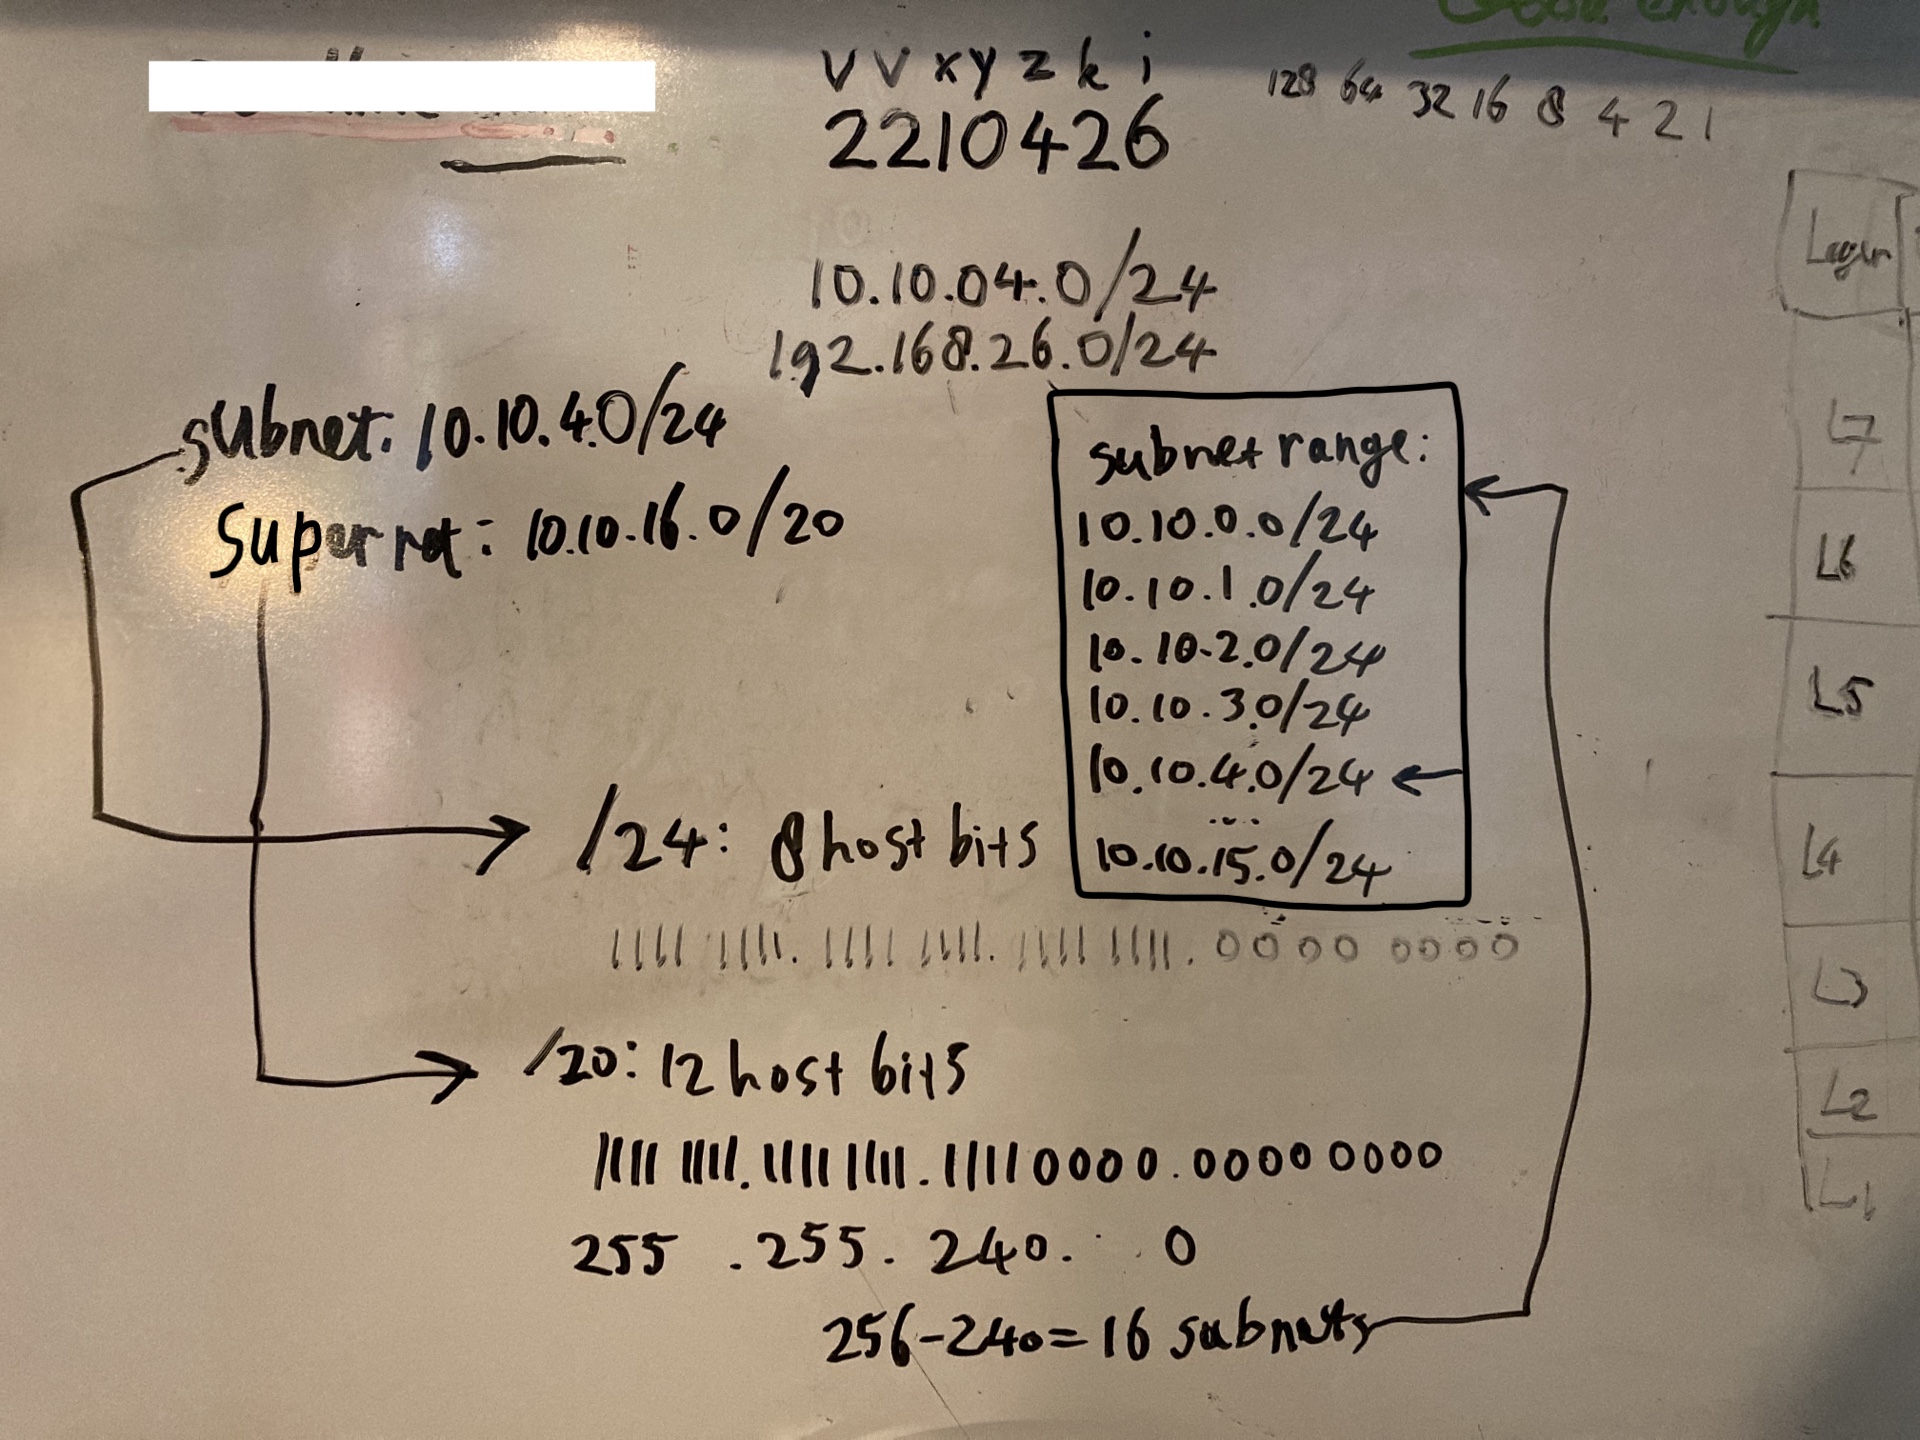 enough
v v x y z k i
2210426
128 64 32 16 8 4 2 1
10.10.04.0/24
192.168.26.0/24
subnet: 10.10.4.0/24
Supernet: 10.10.16.0/20
subnet range:
10.10.0.0/24
10.10.1.0/24
10.10.2.0/24
10.10.3.0/24
10.10.4.0/24
...
10.10.15.0/24
/24: 8 host bits
1111 1111. 1111 1111. 1111 1111. 0000 0000
/20: 12 host bits
1111 1111. 1111 1111. 1111 0000. 0000 0000
255 . 255. 240. 0
256-240=16 subnets
L7
L6
L5
L4
L3
L2
L1